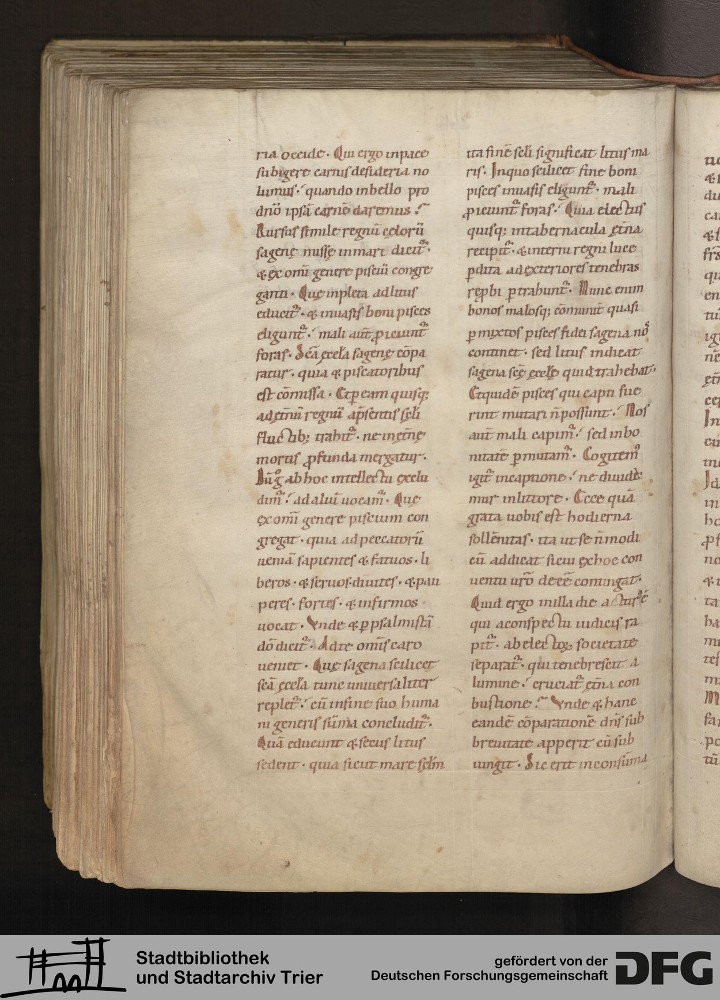 ria occide. Qui ergo in pace
subigere carnis desideria no
lumus. quando in bello pro
dño ipsã carnẽ daremus.
Rursus simile regnũ celorũ
sagenę missę in mari dicit᷑.
& ex omi genere pisciũ congre
ganti. Quę inpleta ad litus
educit᷑. & in uasis boni pisces
eligunt᷑. mali aut̃ ꝓiciunt᷑
foras. Scã ęcc̃la sagenę cõpa
ratur. quia & piscatoribus
est cõmissa. Et ꝑ eam quisq;
ad ętñũ regnũ a p̃sentis sc̃li
fluctib; trahit᷑. ne in ętnę
mortis ꝓfunda mergatur.
ab hoc intellectu exclu
dim᷒. ad aluĩ uocam᷒. Quę
ex omi genere piscium con
gregat. quia ad peccatorũ
ueniã sapientes & fatuos. li
beros. & seruos. diuites. & pau
peres. fortes. & infirmos
uocat. Vnde & ꝑ psalmistã
dõ dicit᷑. Ad te omĩs caro
ueniet. Quę sagena scilicet
scã ęcc̃la tunc uniuersaliter
replet᷑. cũ in fine suo huma
ni generis sũma concludit᷑.
Quã educunt & secus litus
sedent. quia sicut mare sclm̃
ita finẽ scl̃i significat litus ma
ris. In quo scilicet fine boni
pisces in uasis eligunt᷑. mali
ꝓiciunt᷑ foras. Quia electus
quisq; in tabernacula ętna
recipit᷑. & interni regni luce
ꝑdita ad exteriores tenebras
rep̃bi ꝑtrahunt᷑. Nunc enim
bonos malosq; cõmunit᷑ quasi
ꝑmixtos pisces fidei sagena nos
continet. sed litus indicat
sagena scę ęccłę quid trahebat.
Et quidẽ pisces qui capti fue
rint mutari ñ possunt. Nos
aut̃ mali capim᷒. sed in bo
nitatẽ ꝑmutam᷒. Cogitem᷒
igit᷑ in captione. ne diuidã
mur in littore. Ecce quã
grata uobis est hodierna
sollẽnitas. ita ut se ñ modi
cũ addicat siqui ex hoc con
uentu ur̃o deeẽ contingat.
Quid ergo in illa die acturus ẽ
qui a conspectu iudicis ra
pit᷑. ab electoꝝ societate
separat᷑. qui tenebrescit a
lumine. cruciat᷑ ętna con
bustione. Vnde & hanc
eandẽ cõparationẽ dñs sub
breuitate apperit cũ sub
iungit. Sic erit in consũma
Stadtbibliothek
und Stadtarchiv Trier
gefördert von der
Deutschen Forschungsgemeinschaft
DFG